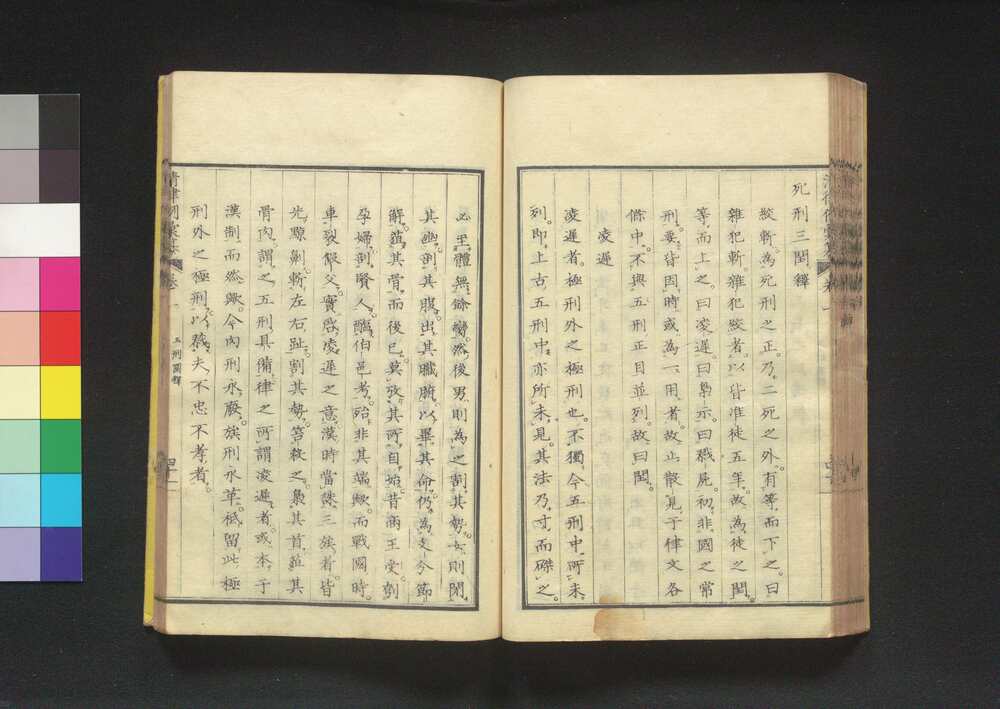 死刑三閏釋
絞斬。為死刑之正。乃二死之外。有等而下之。曰
雜犯斬。雜犯絞者。以皆准徒五年。故為徒之閏。
等而上之。曰凌遲。曰梟示。曰戮屍。初非國之常
刑。要皆因時或為一用者。故止散見于律文各
條中。不與五刑正目並列。故曰閏。
凌遲
凌遲者。極刑外之極刑也。不獨今五刑中。所未
列。即上古五刑中。亦所未見。其法乃寸而磔之。
必至體無餘臠。然後男則為之割其勢。女則閉
其幽。剖其腹。出其臟腑。以畢其命。仍為支分節
解。菹其骨而後已。莫攷其所自始。昔商王受。刳
孕婦。剖賢人。醢伯邑考。殆非其端歟。而戰國時。
車裂假父。實啓凌遲之意。漢時當誅三族者。皆
先黥劓。斬左右趾。割其勢。笞殺之。梟其首。菹其
骨肉。謂之五刑具備。律之所謂凌遲者。或本于
漢制而然歟。今肉刑永廢。族刑永革。祗留此極
刑外之極刑。以戮夫不忠不孝者。
五刑圖釋